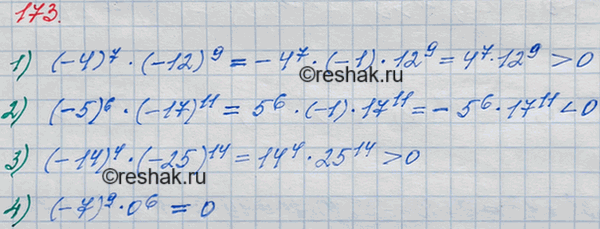 173.
1) (-4)⁷ · (-12)⁹ = -4⁷ · (-1) · 12⁹ = 4⁷ · 12⁹ > 0
©reshak.ru
2) (-5)⁶ · (-17)¹¹ = 5⁶ · (-1) · 17¹¹ = - 5⁶ · 17¹¹ < 0
3) (-14)⁴ · (-25)¹⁴ = 14⁴ · 25¹⁴ > 0
©reshak.ru
4) (-7)⁹ · 0⁶ = 0